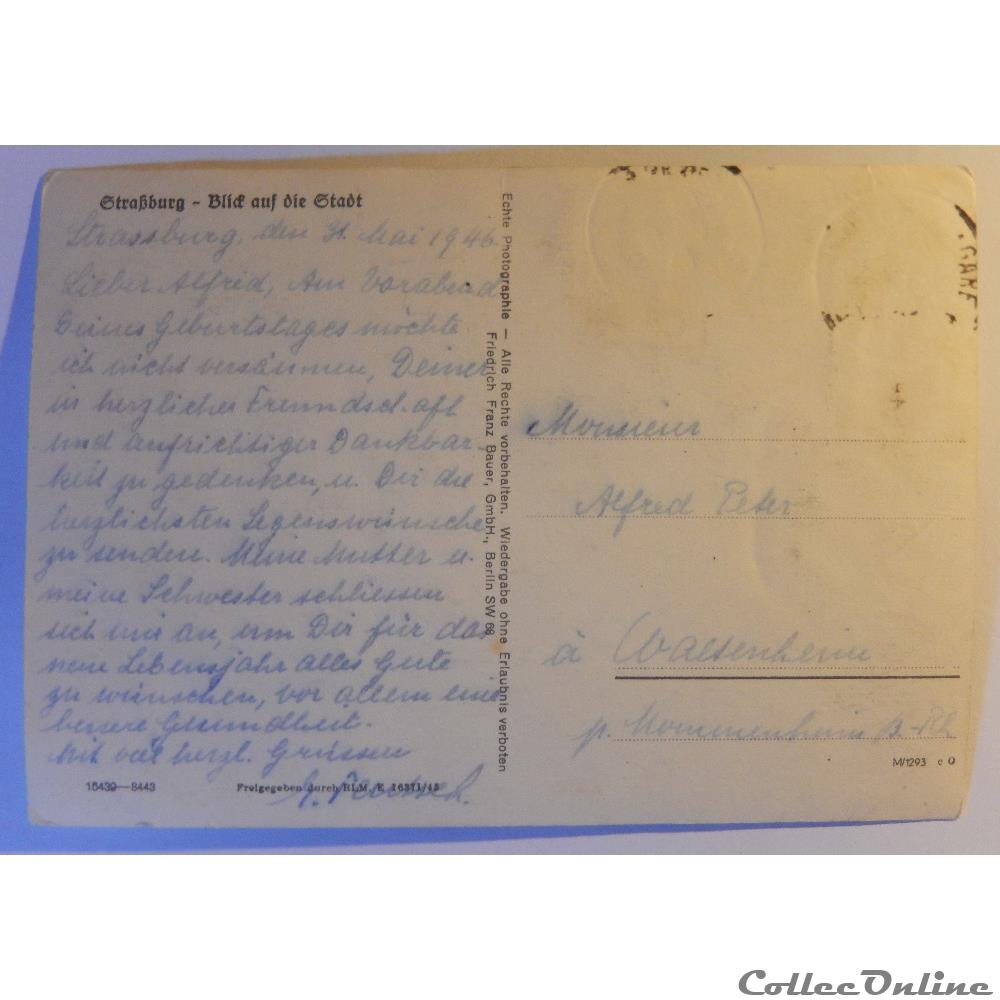 Straßburg - Blick auf die Stadt
Strassburg, den 31. Mai 1946.
Lieber Alfred, Am Vorabend
Deines Geburtstages möchte
ich nicht versäumen, Deiner
in herzlicher Freundschaft
und aufrichtiger Dankbar-
keit zu gedenken, u. Dir die
herzlichsten Segenswünsche
zu senden. Meine Mutter u.
meine Schwester schliessen
sich mir an, um Dir für das
neue Lebensjahr alles Gute
zu wünschen, vor allem eine
bessere Gesundheit.
Mit viel herzl. Grüssen
16439—8443
Freigegeben durch RLM. E 16371/43
Echte Photographie — Alle Rechte vorbehalten. Wiedergabe ohne Erlaubnis verboten
Friedrich Franz Bauer, GmbH., Berlin SW 68
GARE
Monsieur
Alfred Peter
à Waltenheim
p. Mommenheim B.-Rh
M/1293 c O
CollecOnline